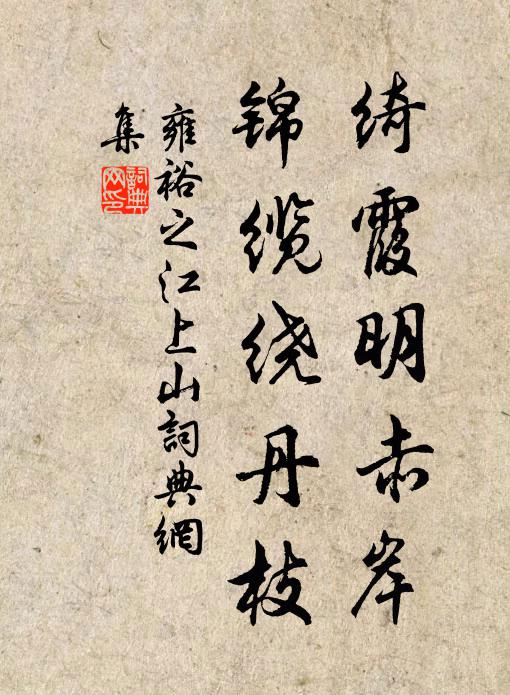 绮霞明赤岸
锦缆绕丹枝
雍裕之江上山詞典網
集
詞典网印